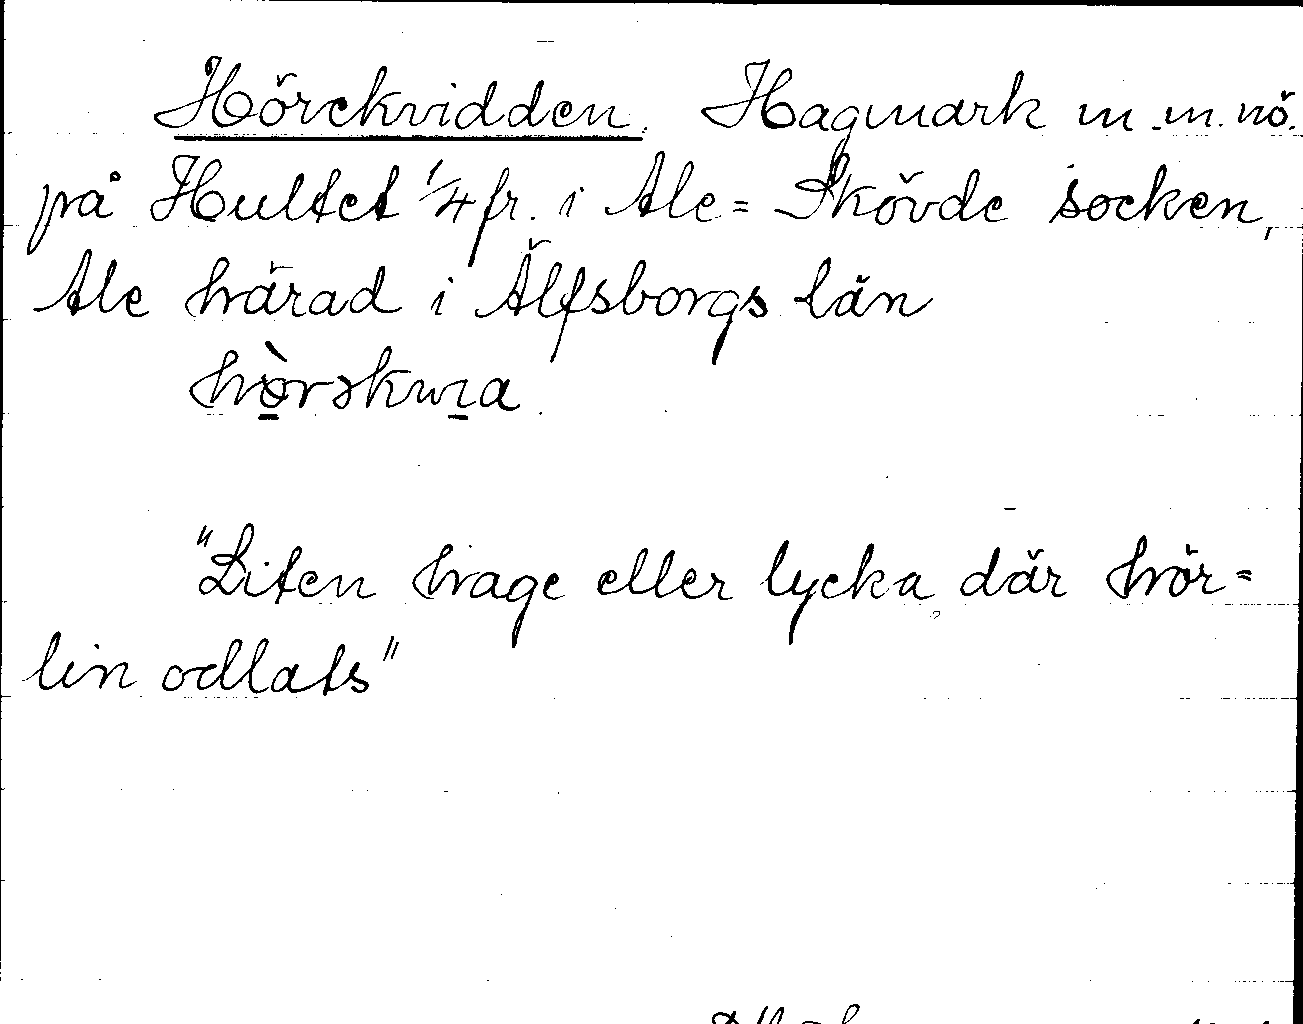 Hörekvidden. Hagmark m.m. nö.
på Hultet 1/4 fr. i Ale=Skövde socken,
Ale härad i Älfsborgs län

"Liten hage eller lycka, där hör=
lin odlats"